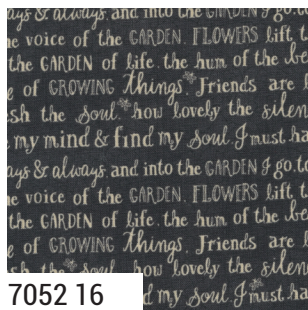 ays & always. and into the GARDEN I go to
e voice of the GARDEN. FLOWERS lift t
the GARDEN of life. the hum of the be
e of GROWING things. Friends are l
sh the soul. how lovely the silen
my mind & find my soul. I must ha
ays & always. and into the GARDEN I go to
e voice of the GARDEN. FLOWERS lift t
the GARDEN of life. the hum of the be
e of GROWING things. Friends are l
sh the soul. how lovely the silen
d my soul. I must ha
7052 16